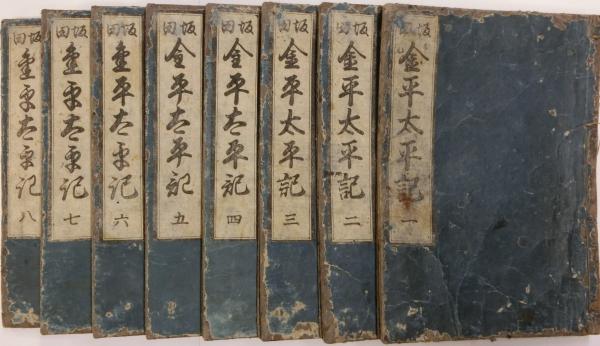 坂田
金平太平記 一
坂田
金平太平記 二
坂田
金平太平記 三
坂田
金平太平記 四
坂田
金平太平記 五
坂田
金平太平記 六
坂田
金平太平記 七
坂田
金平太平記 八